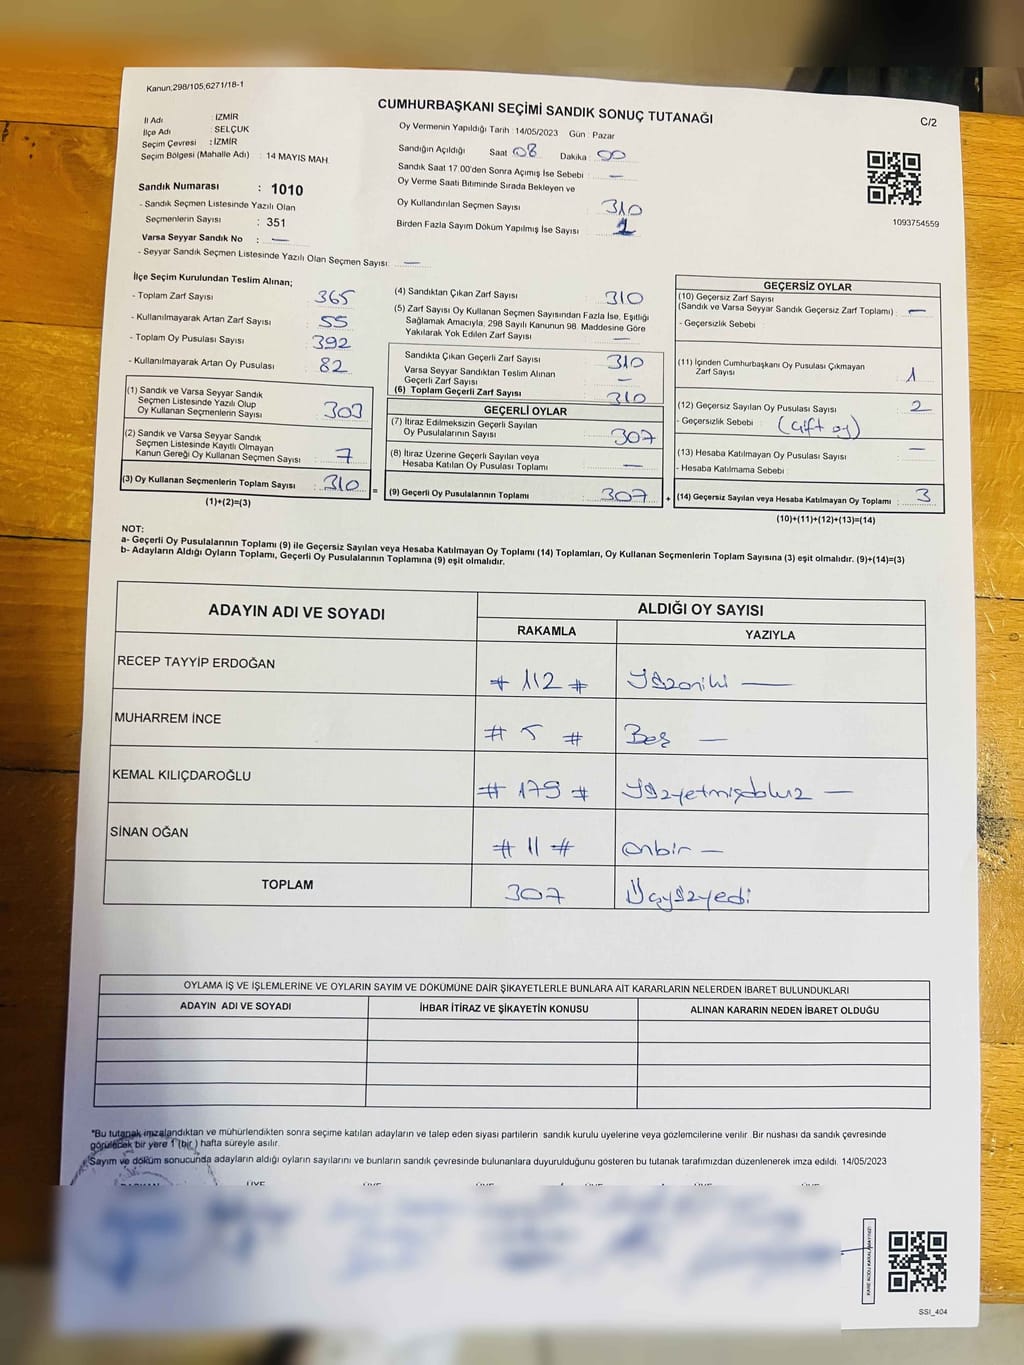 Kanun;298/105;6271/18-1
CUMHURBAŞKANI SEÇİMİ SANDIK SONUÇ TUTANAĞI
C/2
İl Adı : İZMİR
İlçe Adı : SELÇUK
Seçim Çevresi : İZMİR
Seçim Bölgesi (Mahalle Adı) : 14 MAYIS MAH
Sandık Numarası : 1010
- Sandık Seçmen Listesinde Yazılı Olan
Seçmenlerin Sayısı : 351
Varsa Seyyar Sandık No : —
- Seyyar Sandık Seçmen Listesinde Yazılı Olan Seçmen Sayısı: —
Oy Vermenin Yapıldığı Tarih : 14/05/2023 Gün : Pazar
Sandığın Açıldığı Saat 08 Dakika : 00
Sandık Saat 17.00'den Sonra Açımış İse Sebebi : —
Oy Verme Saati Bitiminde Sırada Bekleyen ve
Oy Kullandırılan Seçmen Sayısı : 310
Birden Fazla Sayım Döküm Yapılmış İse Sayısı : 1
1093754559
İlçe Seçim Kurulundan Teslim Alınan;
- Toplam Zarf Sayısı : 365
- Kullanılmayarak Artan Zarf Sayısı : 55
- Toplam Oy Pusulası Sayısı : 392
- Kullanılmayarak Artan Oy Pusulası : 82
(1) Sandık ve Varsa Seyyar Sandık
Seçmen Listesinde Yazılı Olup
Oy Kullanan Seçmenlerin Sayısı : 303
(2) Sandık ve Varsa Seyyar Sandık
Seçmen Listesinde Kayıtlı Olmayan
Kanun Gereği Oy Kullanan Seçmen Sayısı : 7
(3) Oy Kullanan Seçmenlerin Toplam Sayısı : 310 =
(1)+(2)=(3)
(4) Sandıktan Çıkan Zarf Sayısı : 310
(5) Zarf Sayısı Oy Kullanan Seçmen Sayısından Fazla İse, Eşitliği
Sağlamak Amacıyla; 298 Sayılı Kanunun 98. Maddesine Göre
Yakılarak Yok Edilen Zarf Sayısı : —
Sandıkta Çıkan Geçerli Zarf Sayısı : 310
Varsa Seyyar Sandıktan Teslim Alınan
Geçerli Zarf Sayısı : —
(6) Toplam Geçerli Zarf Sayısı : 310
GEÇERLİ OYLAR
(7) İtiraz Edilmeksizin Geçerli Sayılan
Oy Pusulalarının Sayısı : 307
(8) İtiraz Üzerine Geçerli Sayılan veya
Hesaba Katılan Oy Pusulası Toplamı : —
(9) Geçerli Oy Pusulalarının Toplamı : 307 +
GEÇERSİZ OYLAR
(10) Geçersiz Zarf Sayısı
(Sandık ve Varsa Seyyar Sandık Geçersiz Zarf Toplamı) : —
- Geçersizlik Sebebi :
(11) İçinden Cumhurbaşkanı Oy Pusulası Çıkmayan
Zarf Sayısı : 1
(12) Geçersiz Sayılan Oy Pusulası Sayısı : 2
- Geçersizlik Sebebi : (Çift oy)
(13) Hesaba Katılmayan Oy Pusulası Sayısı : —
- Hesaba Katılmama Sebebi :
(14) Geçersiz Sayılan veya Hesaba Katılmayan Oy Toplamı : 3
(10)+(11)+(12)+(13)=(14)
NOT:
a- Geçerli Oy Pusulalarının Toplamı (9) ile Geçersiz Sayılan veya Hesaba Katılmayan Oy Toplamı (14) Toplamları, Oy Kullanan Seçmenlerin Toplam Sayısına (3) eşit olmalıdır. (9)+(14)=(3)
b- Adayların Aldığı Oyların Toplamı, Geçerli Oy Pusulalarının Toplamına (9) eşit olmalıdır.
ADAYIN ADI VE SOYADI
ALDIĞI OY SAYISI
RAKAMLA YAZIYLA
RECEP TAYYİP ERDOĞAN # 112 # Yüzoniki —
MUHARREM İNCE # 5 # Beş —
KEMAL KILIÇDAROĞLU # 179 # Yüzyetmişdokuz —
SİNAN OĞAN # 11 # onbir —
TOPLAM 307 Üçyüzyedi
OYLAMA İŞ VE İŞLEMLERİNE VE OYLARIN SAYIM VE DÖKÜMÜNE DAİR ŞİKAYETLERLE BUNLARA AİT KARARLARIN NELERDEN İBARET BULUNDUKLARI
ADAYIN ADI VE SOYADI İHBAR İTİRAZ VE ŞİKAYETİN KONUSU ALINAN KARARIN NEDEN İBARET OLDUĞU
*Bu tutanak imzalandıktan ve mühürlendikten sonra seçime katılan adayların ve talep eden siyasi partilerin sandık kurulu üyelerine veya gözlemcilerine verilir. Bir nushası da sandık çevresinde
görülecek bir yere 1 (bir ) hafta süreyle asılır.
Sayım ve döküm sonucunda adayların aldığı oyların sayılarını ve bunların sandık çevresinde bulunanlara duyurulduğunu gösteren bu tutanak tarafımızdan düzenlenerek imza edildi. 14/05/2023
BAŞKAN ÜYE ÜYE ÜYE ÜYE ÜYE ÜYE
SSI_404